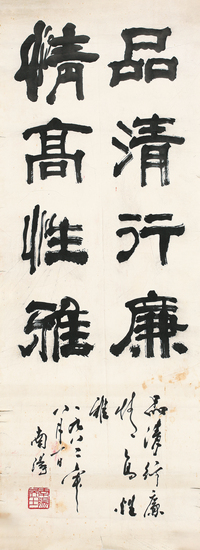 品清行廉
情高性雅
品清行廉
情高性
雅
一九八二年
八月
南